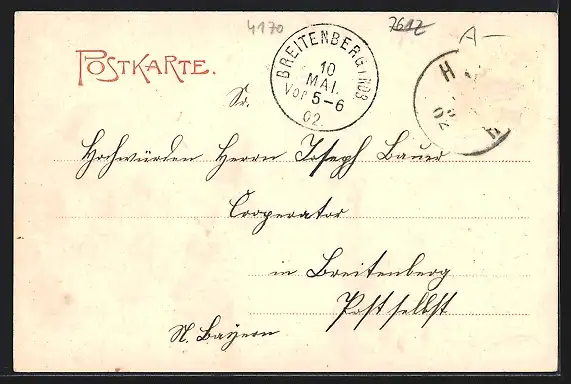 4170
7612
A-
POSTKARTE.
BREITENBERG.N.ÖB
10
MAI.
Vor 5-6
02.
H
02
H
Sr.
Hochwürden Herrn Joseph Bauer
Cooperator
in Breitenberg
Post selbst
N. Bayern